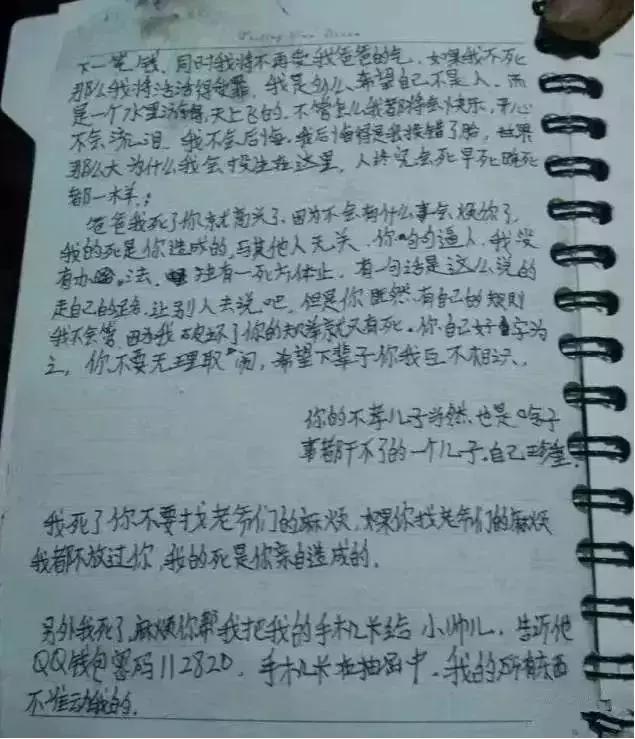 下一笔钱，同时我将不再受我爸爸的气。如果我不死
那么我将活活得受罪，我是多么希望自己不是人，而
是一个水里游得，天上飞的，不管怎么我都将会快乐，开心
不会流泪，我不会后悔，我后悔得是我投错了胎，世界
那么大为什么我会投生在这里，人终究会死早死晚死
都一样；
爸爸我死了你就高兴了，因为不会有什么事会烦你了，
我的死是你造成的，与其他人无关，你句句逼人，我没
有办法，独有一死方休止，有一句话是这么说的
走自己的路，让别人去说吧，但是你既然有自己的规则
我不会管，因为我破坏了你的规则就只有死。你自己好自为
之，你不要无理取闹，希望下辈子你我互不相识。
你的不孝儿子当然也是啥子
事都干不了的一个儿子，自己珍重！
我死了你不要找老爷们的麻烦，如果你找老爷们的麻烦
我都不放过你，我的死是你亲自造成的。
另外我死了，麻烦你帮我把我的手机卡给小帅儿，告诉他
QQ钱包密码112820，手机卡在抽屉中，我的所有东西
不准动我的。